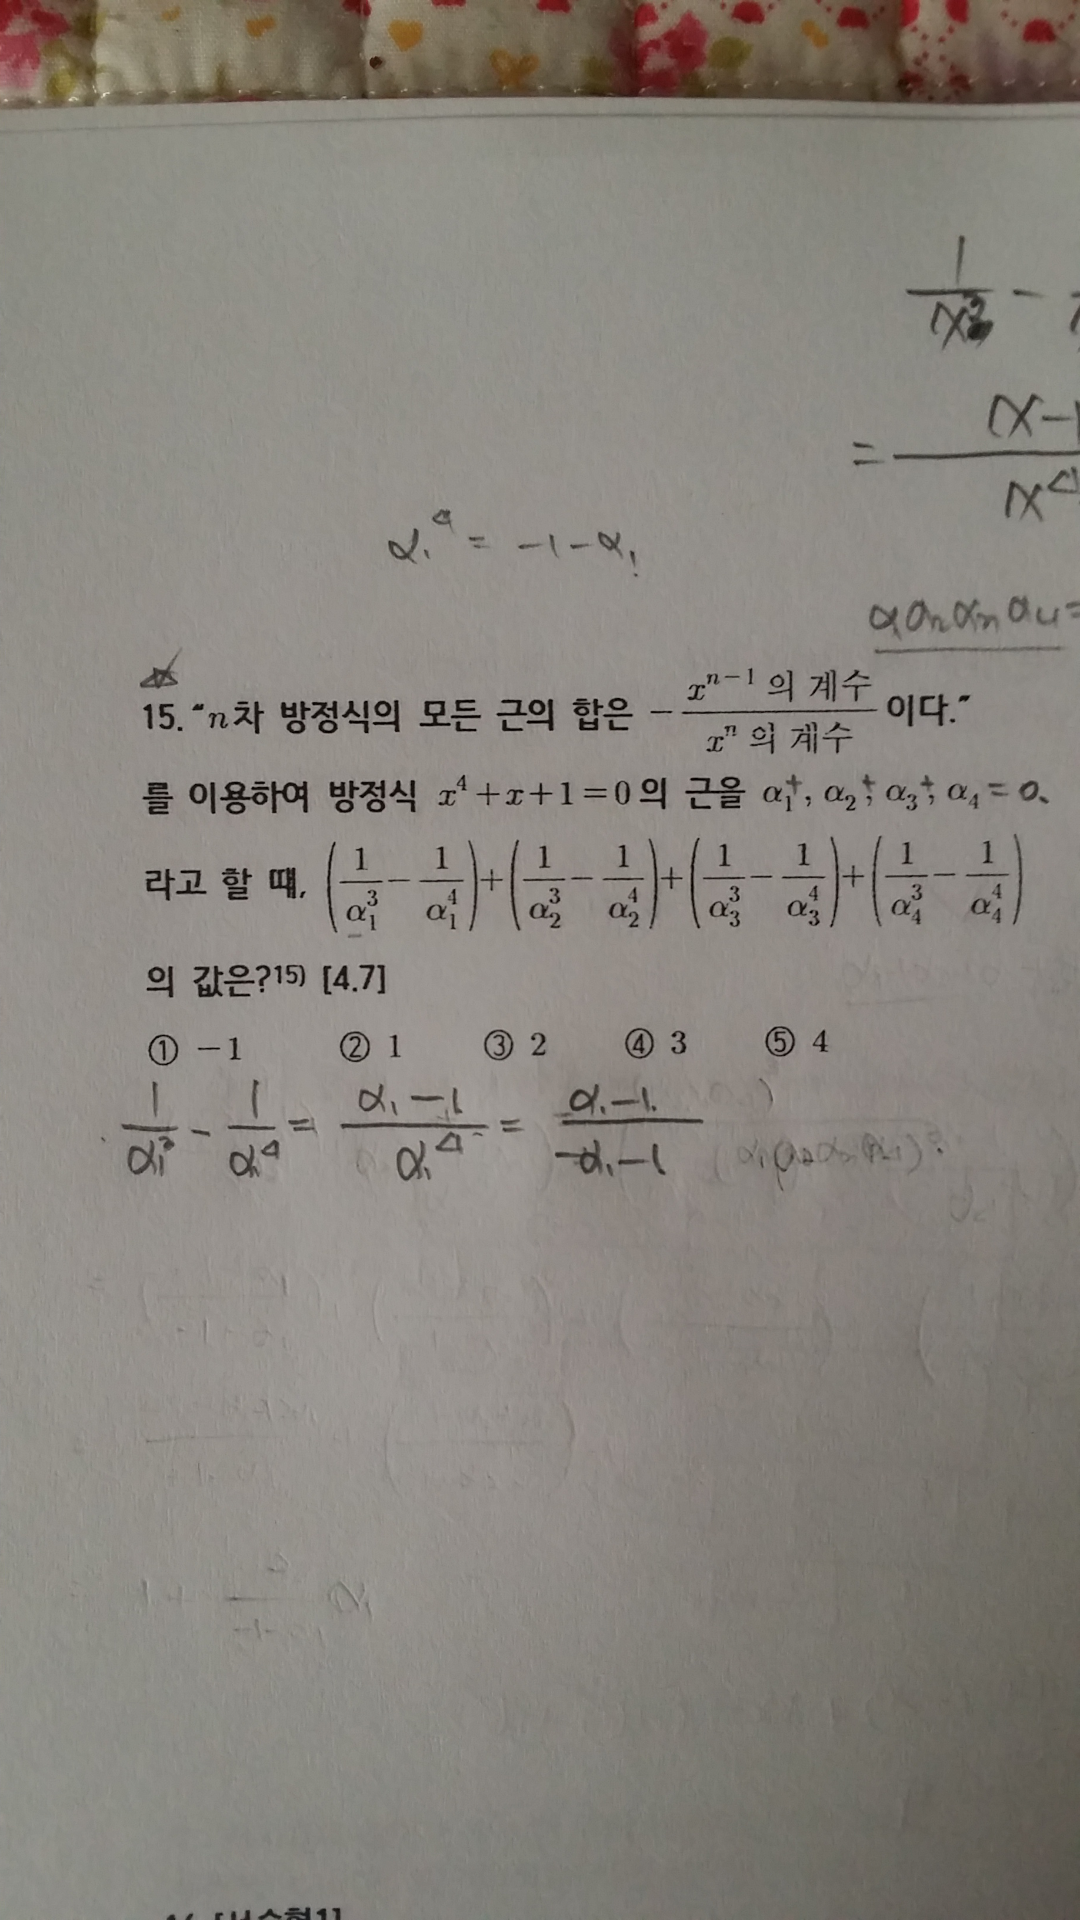 1/x³ -
= x-1/x⁴
α₁⁴ = -1-α₁
15. “n차 방정식의 모든 근의 합은 - xⁿ⁻¹의 계수/xⁿ의 계수 이다.”
를 이용하여 방정식 x⁴+x+1=0의 근을 α₁⁺, α₂⁺, α₃⁺, α₄ = 0.
라고 할 때, (1/α₁³ - 1/α₁⁴)+(1/α₂³ - 1/α₂⁴)+(1/α₃³ - 1/α₃⁴)+(1/α₄³ - 1/α₄⁴)
의 값은?15) [4.7]
① -1 ② 1 ③ 2 ④ 3 ⑤ 4
1/α₁³ - 1/α₁⁴ = α₁-1/α₁⁴ = α₁-1/-α₁-1